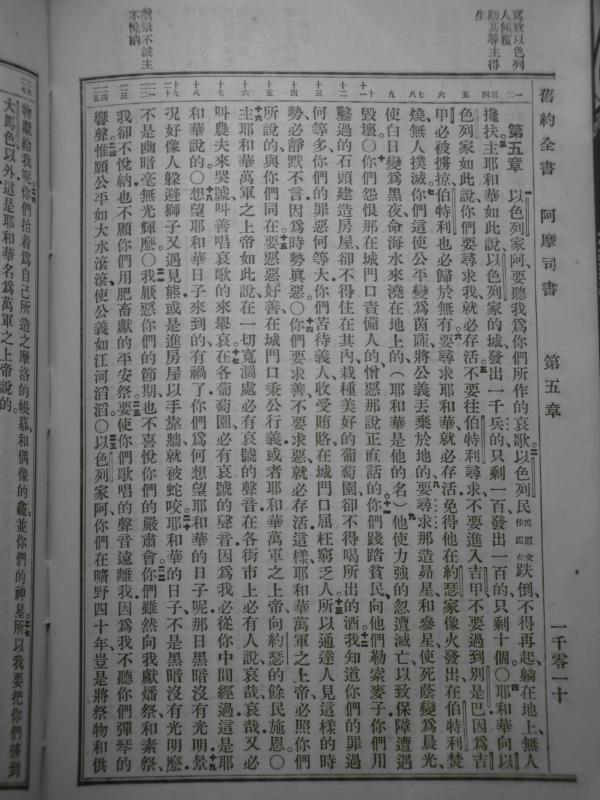 舊約全書 阿摩司書 第五章 一千零一十
人傾覆
勸其尋主得
生
獻祭不誠主
不悅納
第五章 以色列家阿要聽我爲你們所作的哀歌以色列民跌倒、不得再起、躺在地上、無人
攙扶主耶和華如此說以色列家的城發出一千兵的只剩一百發出一百的只剩十個〇耶和華向以
色列家如此說你們要尋求我就必存活不要往伯特利尋求不要進入吉甲不要過到別是巴因爲吉
甲必被擄掠伯特利也必歸於無有要尋求耶和華就必存活免得他在約瑟家像火發出在伯特利焚
燒無人撲滅你們這使公平變爲茵蔯將公義丟棄於地的要尋求那造昴星和參星使死蔭變爲晨光、
使白日變爲黑夜命海水來澆在地上的(耶和華是他的名)他使力強的忽遭滅亡以致保障遭遇
毀壞〇你們怨恨那在城門口責備人的憎惡那說正直話的你們踐踏貧民向他們勒索麥子你們用
鑿過的石頭建造房屋卻不得住在其內栽種美好的葡萄園卻不得喝所出的酒我知道你們的罪過
何等多你們的罪惡何等大你們苦待義人收受賄賂在城門口屈枉窮乏人所以通達人見這樣的時
勢必靜默不言因爲時勢眞惡〇你們要求善不要求惡就必存活這樣耶和華萬軍之上帝必照你們
所說的與你們同在要惡惡好善在城門口秉公行義或者耶和華萬軍之上帝向約瑟的餘民施恩〇
主耶和華萬軍之上帝如此說在一切寬濶處必有哀號的聲音在各街市上必有人說哀哉哀哉又必
叫農夫來哭號叫善唱哀歌的來舉哀在各葡萄園必有哀號的聲音因爲我必從你中間經過這是耶
和華說的〇想望耶和華日子來到的有禍了你們爲何想望耶和華的日子呢那日黑暗沒有光明景
況好像人躲避獅子又遇見熊或是進房屋以手靠牆就被蛇咬耶和華的日子不是黑暗沒有光明麼
不是幽暗毫無光輝麼〇我厭惡你們的節期也不喜悅你們的嚴肅會你們雖然向我獻燔祭和素祭、
我卻不悅納也不顧你們用肥畜獻的平安祭要使你們歌唱的聲音遠離我因爲我不聽你們彈琴的
響聲惟願公平如大水滾滾使公義如江河滔滔〇以色列家阿你們在曠野四十年豈是將祭物和供
物獻給我呢你們抬着爲自己所造之摩洛的帳幕和偶像的龕並你們的神星所以我要把你們擄到
大馬色以外這是耶和華名爲萬軍之上帝說的